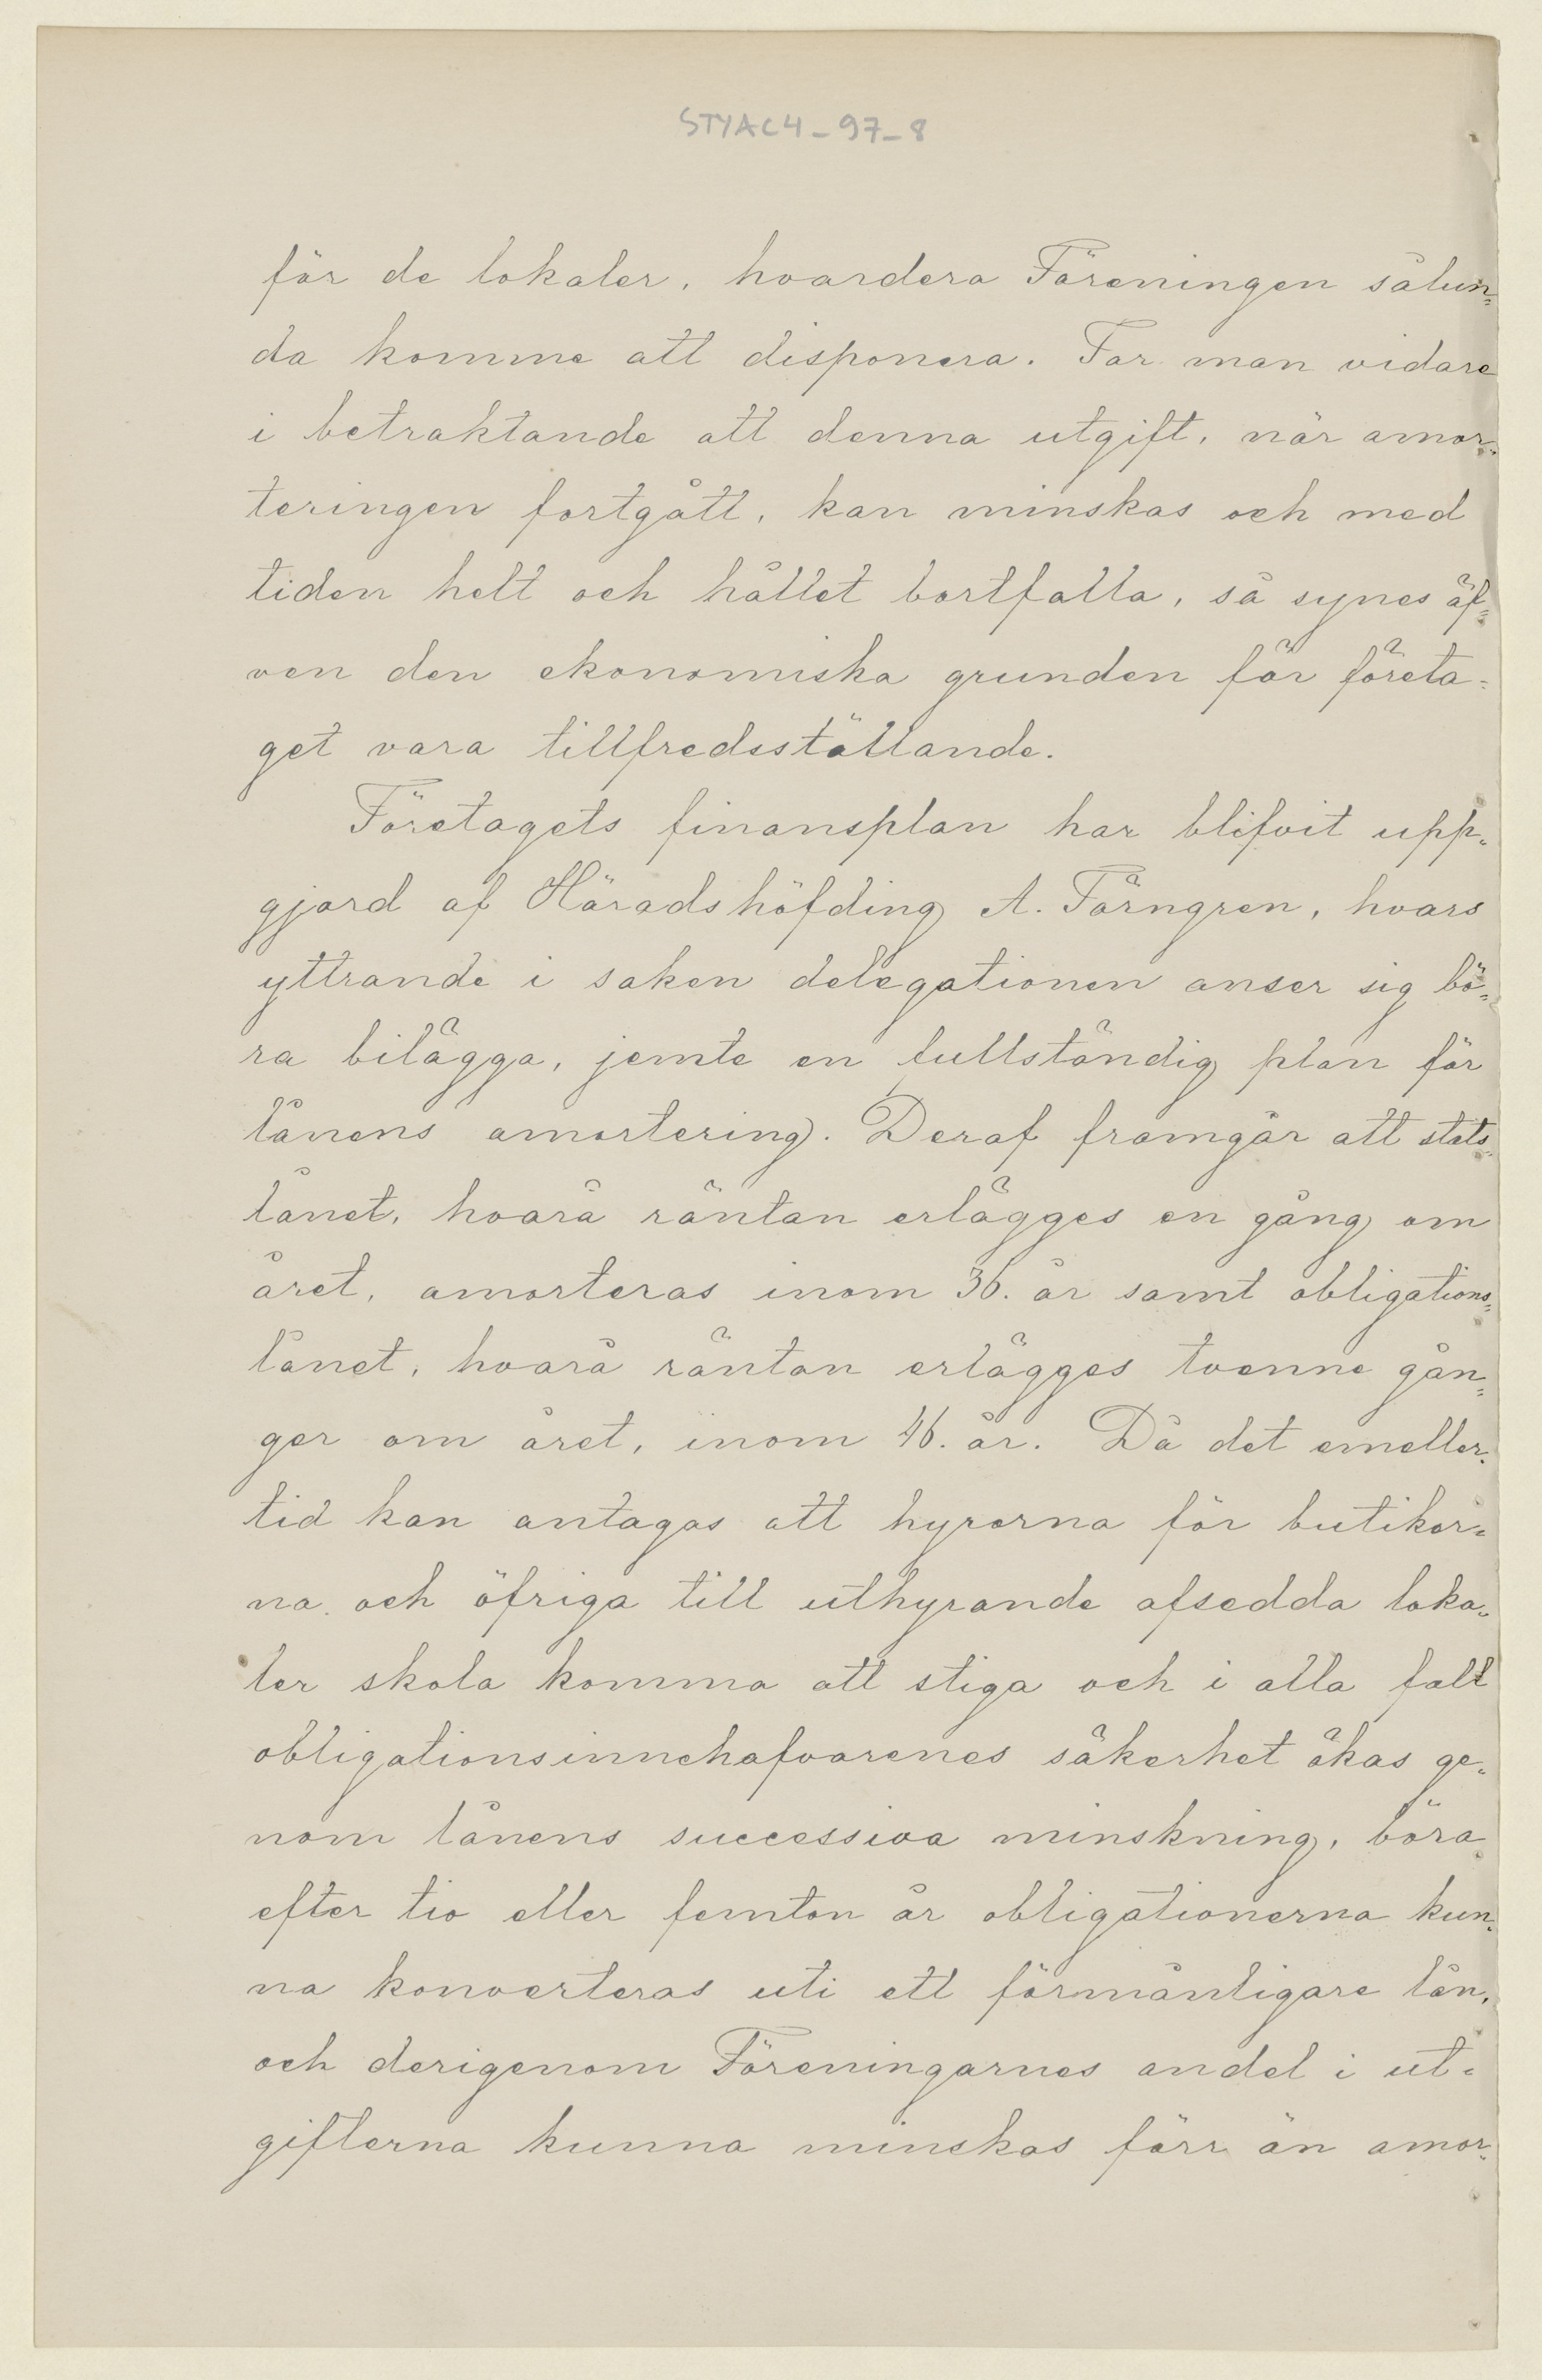 STYAC4_97_8
för de lokaler, hvardera Föreningen sålun=
da komme att disponera. Tar man vidare
i betraktande att denna utgift, när amor=
teringen fortgått, kan minskas och med
tiden helt och hållet bortfalla, så synes äf=
ven den ekonomiska grunden för företa=
get vara tillfredsställande.
Företagets finansplan har blifvit upp=
gjord af Häradshöfding A. Törngren, hvars
yttrande i saken delegationen anser sig bö=
ra bilägga, jemte en fullständig plan för
lånens amortering. Deraf framgår att stats=
lånet, hvarå räntan erlägges en gång om
året, amorteras inom 36. år samt obligations=
lånet, hvarå räntan erlägges tvenne gån=
ger om året, inom 46. år. Då det emeller=
tid kan antagas att hyrorna för butiker=
na och öfriga till uthyrande afsedda loka=
ler skola komma att stiga och i alla fall
obligationsinnehafvarenes säkerhet ökas ge=
nom lånens successiva minskning, böra
efter tio eller femton år obligationerna kun=
na konverteras uti ett förmånligare lån,
och derigenom Föreningarnes andel i ut=
gifterna kunna minskas förr än amor=